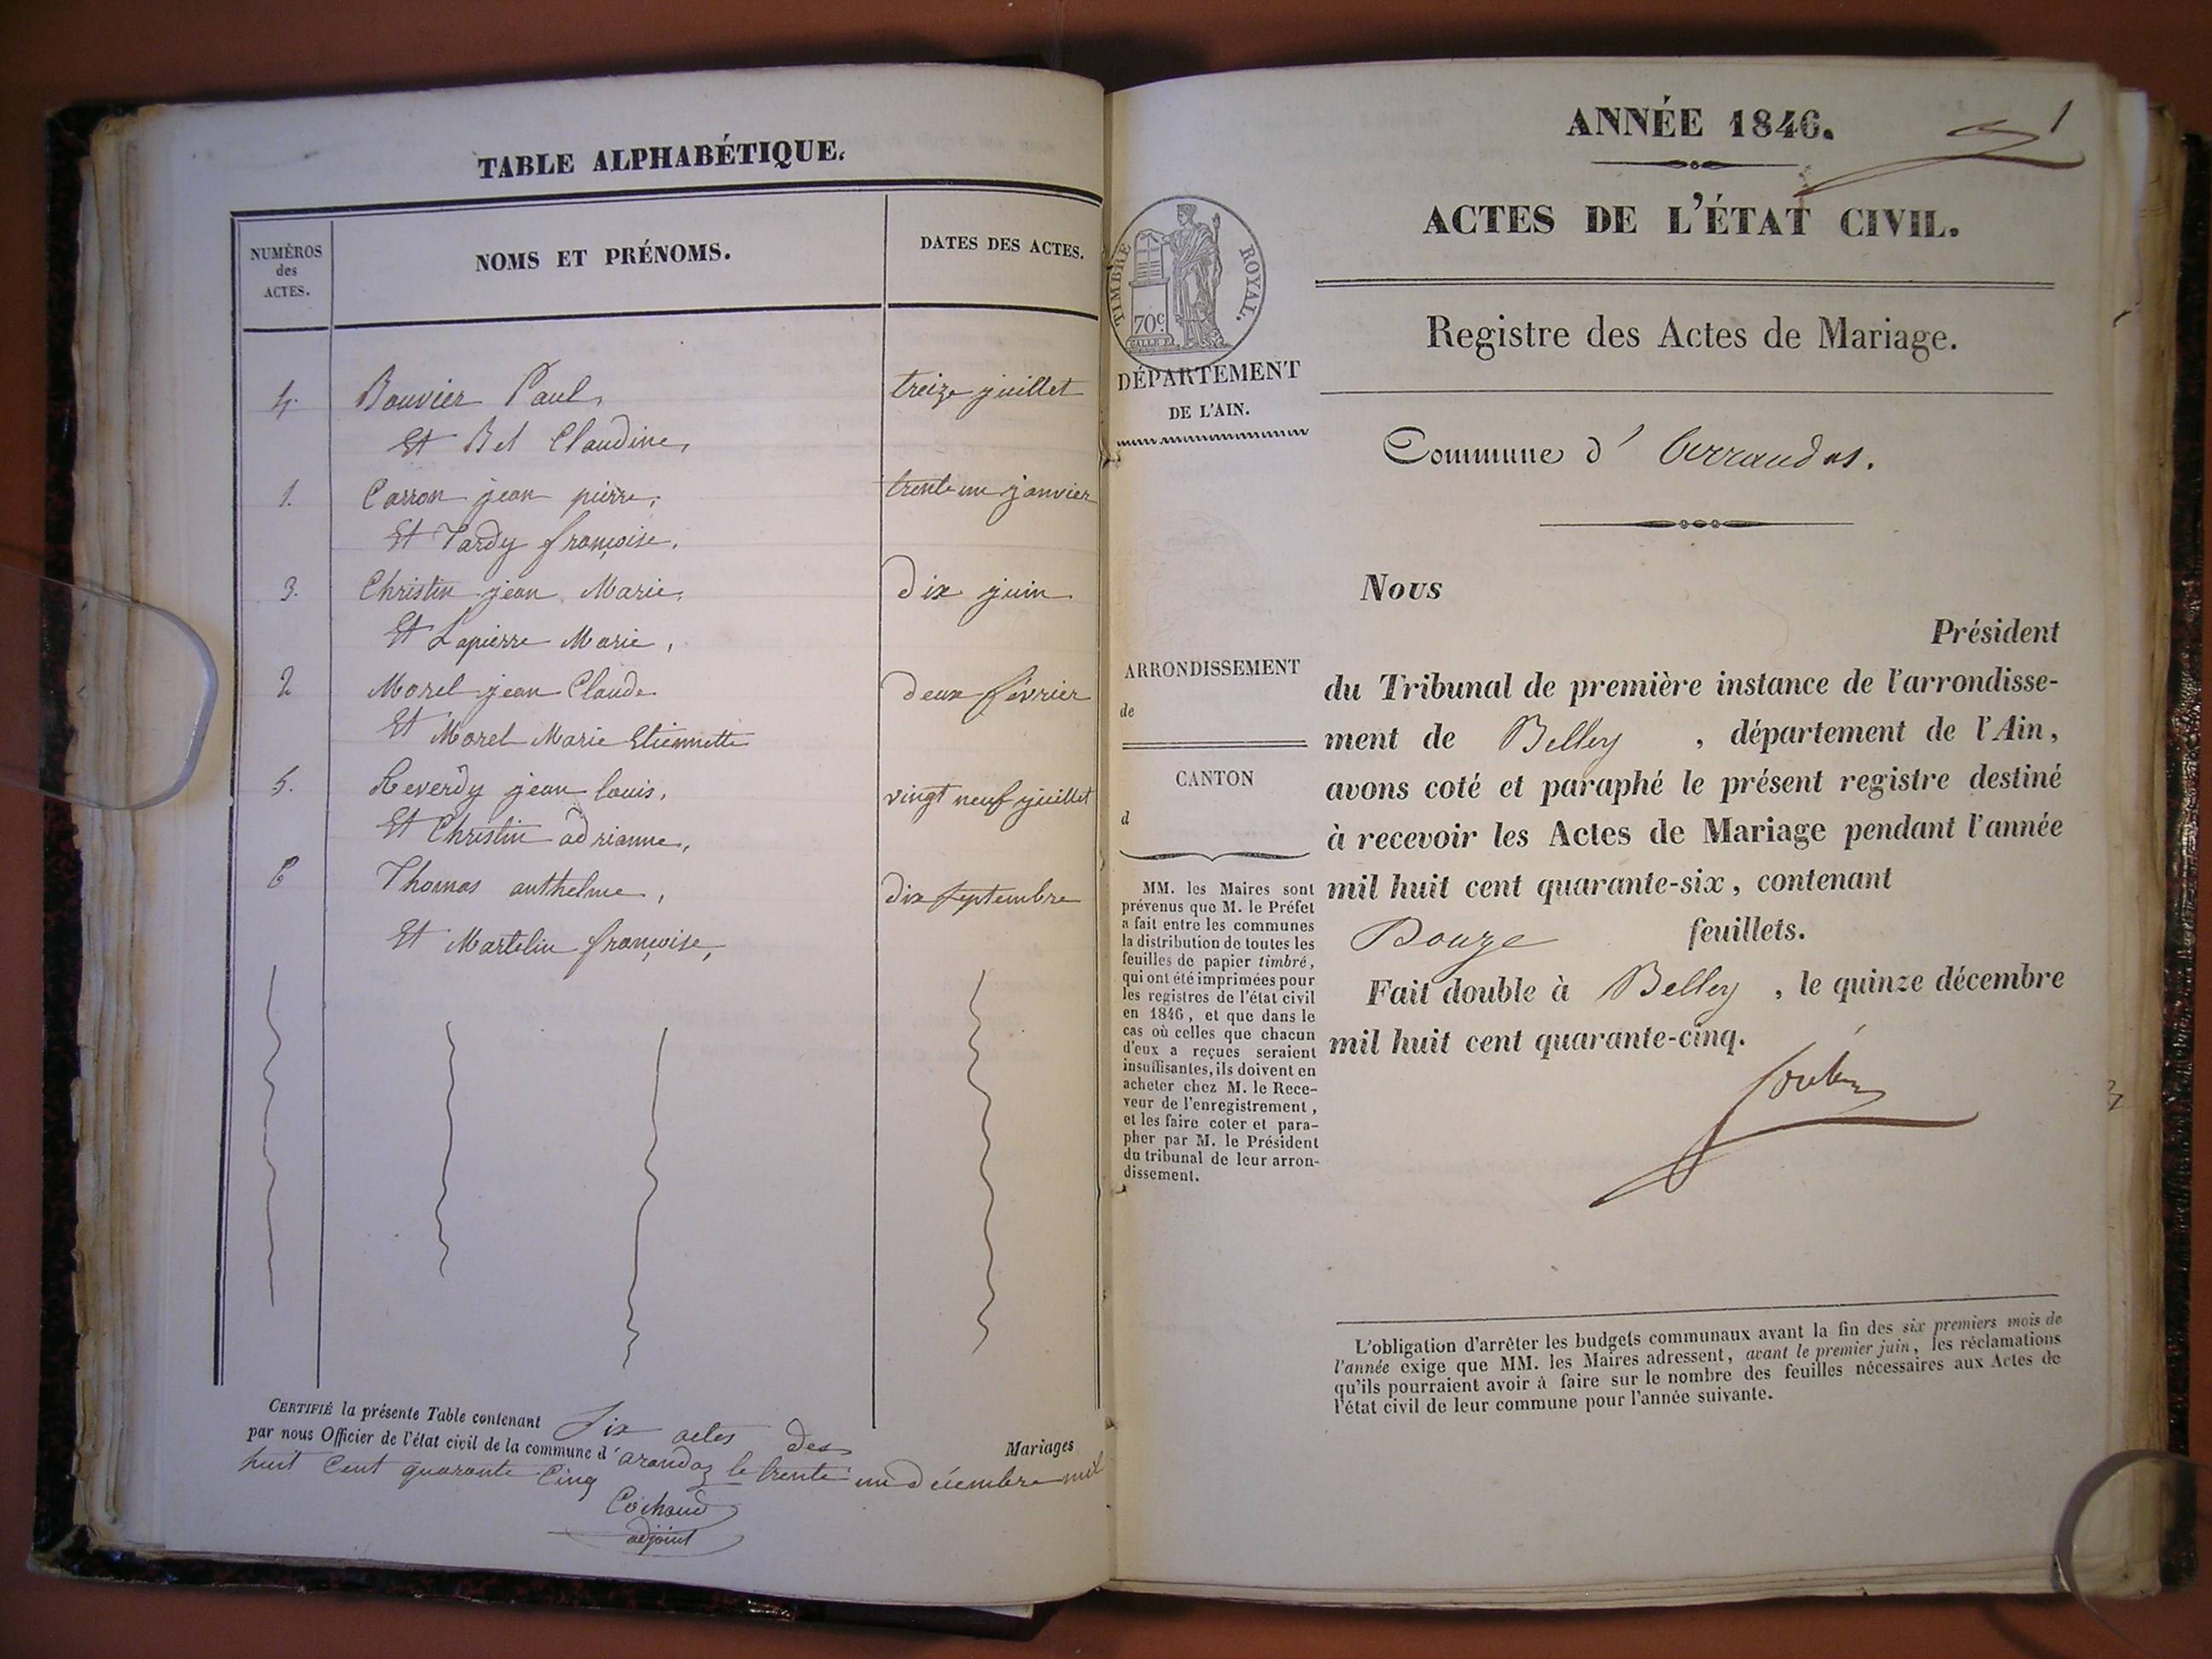 TABLE ALPHABÉTIQUE.
NUMÉROS
des
ACTES.
NOMS ET PRÉNOMS.
DATES DES ACTES.
4. Bouvier Paul, treize juillet
Et Bel Claudine,
1. Carron jean pierre, trente un janvier
Et Tardy françoise,
3. Christin jean Marie, dix juin
Et Lapierre Marie,
2 Morel jean Claude deux février
Et Morel Marie Etiennette
5. Reverdy jean louis, vingt neuf juillet
Et Christin adrianne,
6 Thomas anthelme, dix septembre
Et Martelin françoise,
CERTIFIÉ la présente Table contenant Six actes des Mariages
par nous Officier de l'état civil de la commune d'arandaz le trente un décembre mil
huit Cent quarante Cinq
Cochaud
adjoint
1
ANNÉE 1846.
ACTES DE L'ÉTAT CIVIL.
Registre des Actes de Mariage.
TIMBRE ROYAL.
70c
DÉPARTEMENT
DE L'AIN.
Commune d'
ARRONDISSEMENT
de
CANTON
d
MM. les Maires sont
prévenus que M. le Préfet
a fait entre les communes
la distribution de toutes les
feuilles de papier timbré,
qui ont été imprimées pour
les registres de l'état civil
en 1846, et que dans le
cas où celles que chacun
d'eux a reçues seraient
insuffisantes, ils doivent en
acheter chez M. le Rece-
veur de l'enregistrement,
et les faire coter et para-
pher par M. le Président
du tribunal de leur arron-
dissement.
Nous
Président
du Tribunal de première instance de l'arrondisse-
ment de Belley, département de l'Ain,
avons coté et paraphé le présent registre destiné
à recevoir les Actes de Mariage pendant l'année
mil huit cent quarante-six, contenant
Douze feuillets.
Fait double à Belley, le quinze décembre
mil huit cent quarante-cinq.
L'obligation d'arrêter les budgets communaux avant la fin des six premiers mois de
l'année exige que MM. les Maires adressent, avant le premier juin, les réclamations
qu'ils pourraient avoir à faire sur le nombre des feuilles nécessaires aux Actes de
l'état civil de leur commune pour l'année suivante.